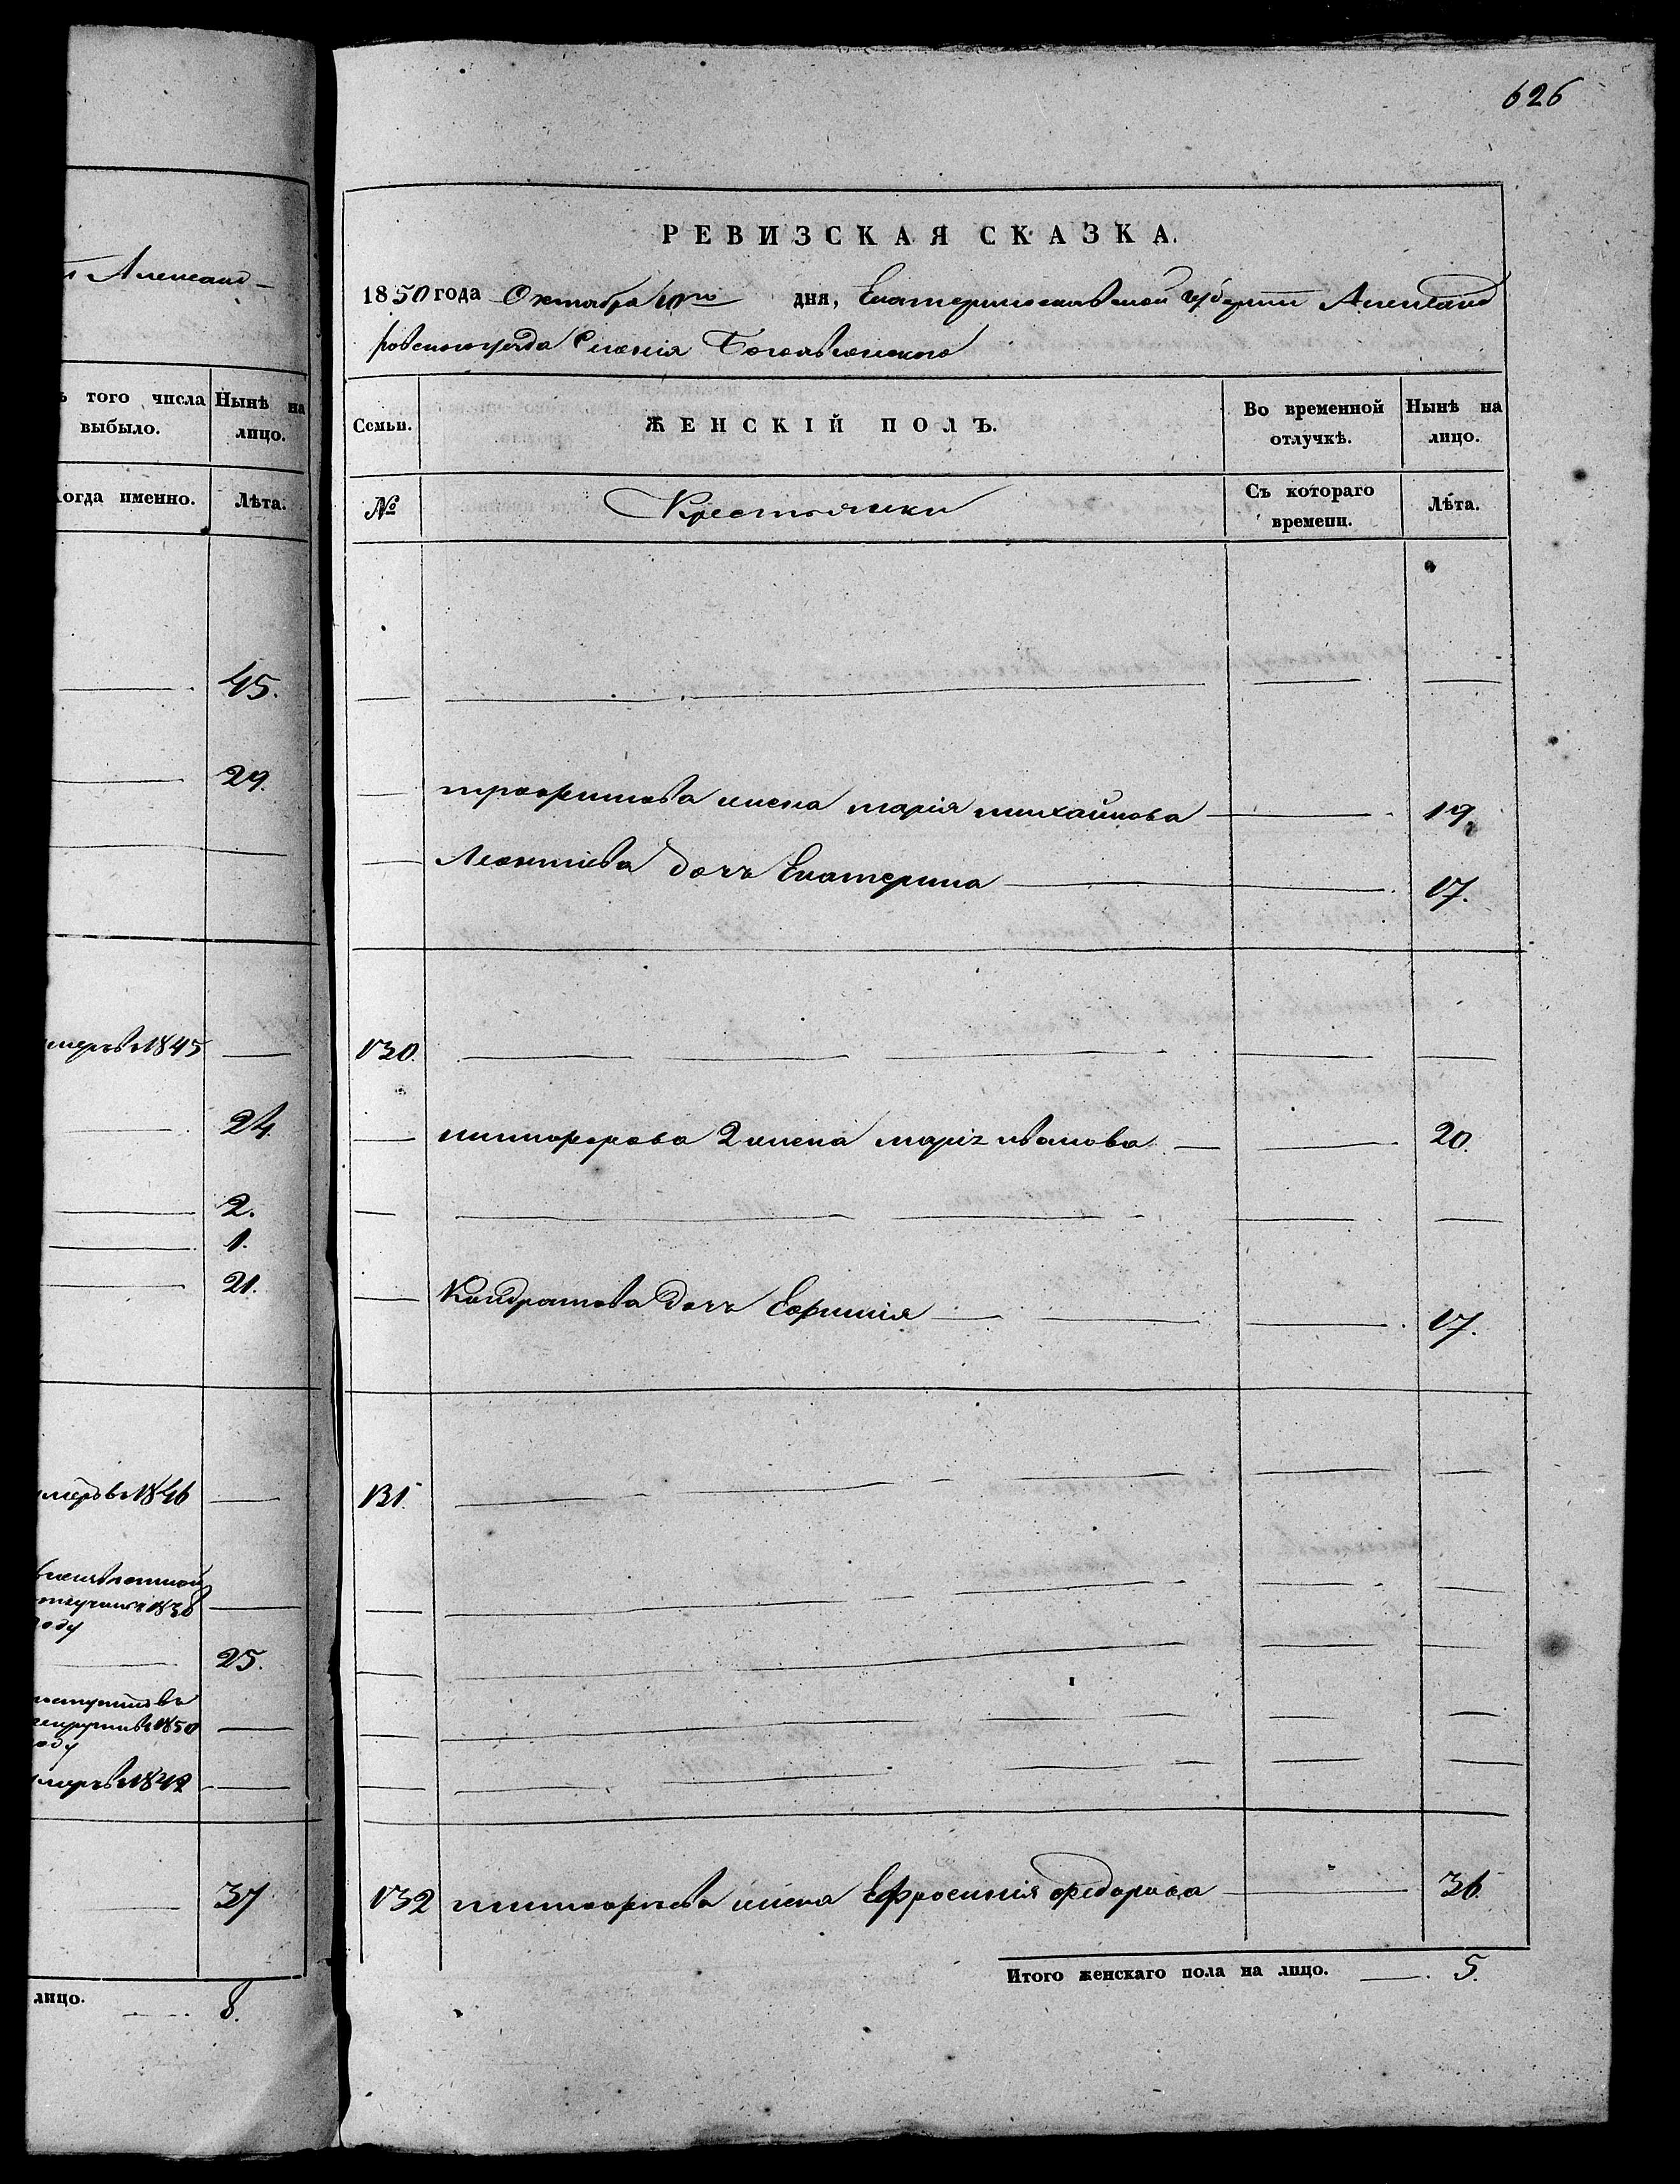 626
Александ-
РЕВИЗСКАЯ СКАЗКА.
1850 года Октября 10го дня, Екатеринославской губернии Александ
ровского уезда Селенія Богоявленского
того числа выбыло.
Нынѣ на лицо.
Когда именно.
Лѣта.
Семьи.
ЖЕНСКІЙ ПОЛЪ.
Во временной отлучкѣ.
Нынѣ на лицо.
№
Крестьянки
Съ котораго времени.
Лѣта.
45.
29.
Трофимова жена Марія Михайлова 19.
Леонтіева дочь Екатерина 17.
1845
130.
24.
Никифорова 2 жена Марія Иванова 20.
2.
1.
21.
Кондратова дочь Ефимія 17.
1846
131.
1838
году
25.
поступилъ въ
рекруты въ 1850
году
1842
37
132 Тимофеева жена Ефросинія Федорова 36.
Итого женскаго пола на лицо. 5.
лицо. 8.